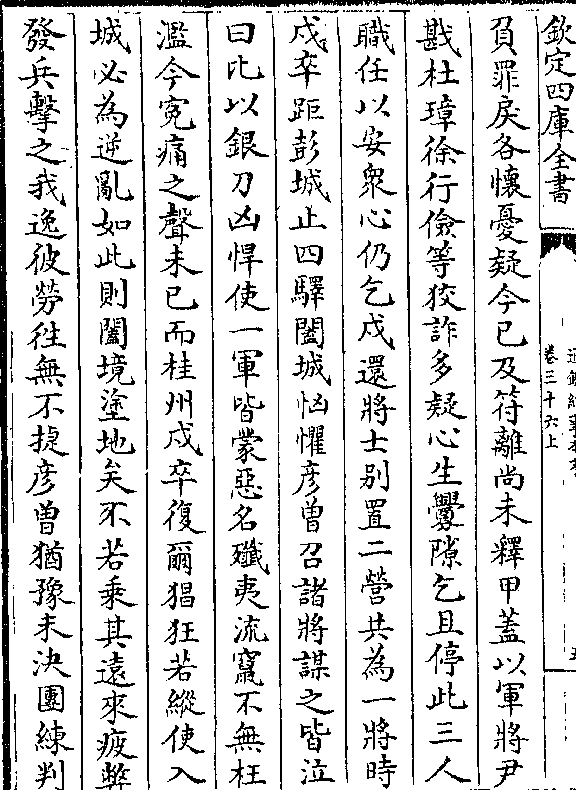 欽定四庫全書
卷三十六上
負罪戾各懷憂疑今已及符離尚未釋甲蓋以軍將尹
戡杜璋徐行儉等狡詐多疑心生釁隙乞且停此三人
職任以安衆心仍乞戍還將士别置二營共為一將時
戍卒距彭城止四驛闔城忷懼彦曾召諸將謀之皆泣
曰比以銀刀凶悍使一軍皆蒙惡名殱夷流竄不無枉
濫今寃痛之聲未已而桂州戍卒復爾猖狂若縱使入
城必為逆亂如此則闔境塗地矣不若乘其遠來疲弊
發兵擊之我逸彼勞徃無不捷彦曽猶豫未決團練判